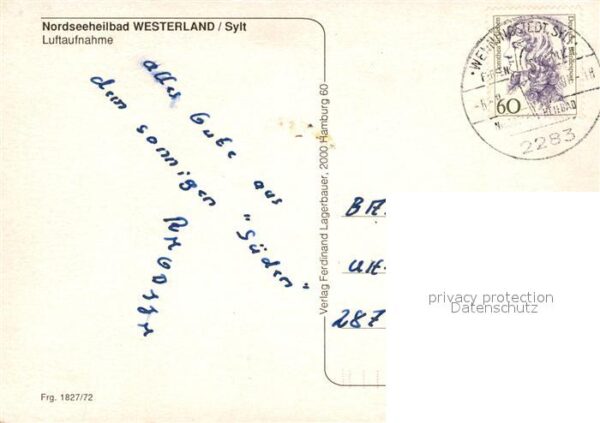 Nordseeheilbad WESTERLAND / Sylt
Luftaufnahme
alles Gute aus
dem sonnigen "Süden"
Verlag Ferdinand Lagerbauer, 2000 Hamburg 60
60
WENNINGSTEDT, SYLT
2283
287
privacy protection
Datenschutz
Frg. 1827/72